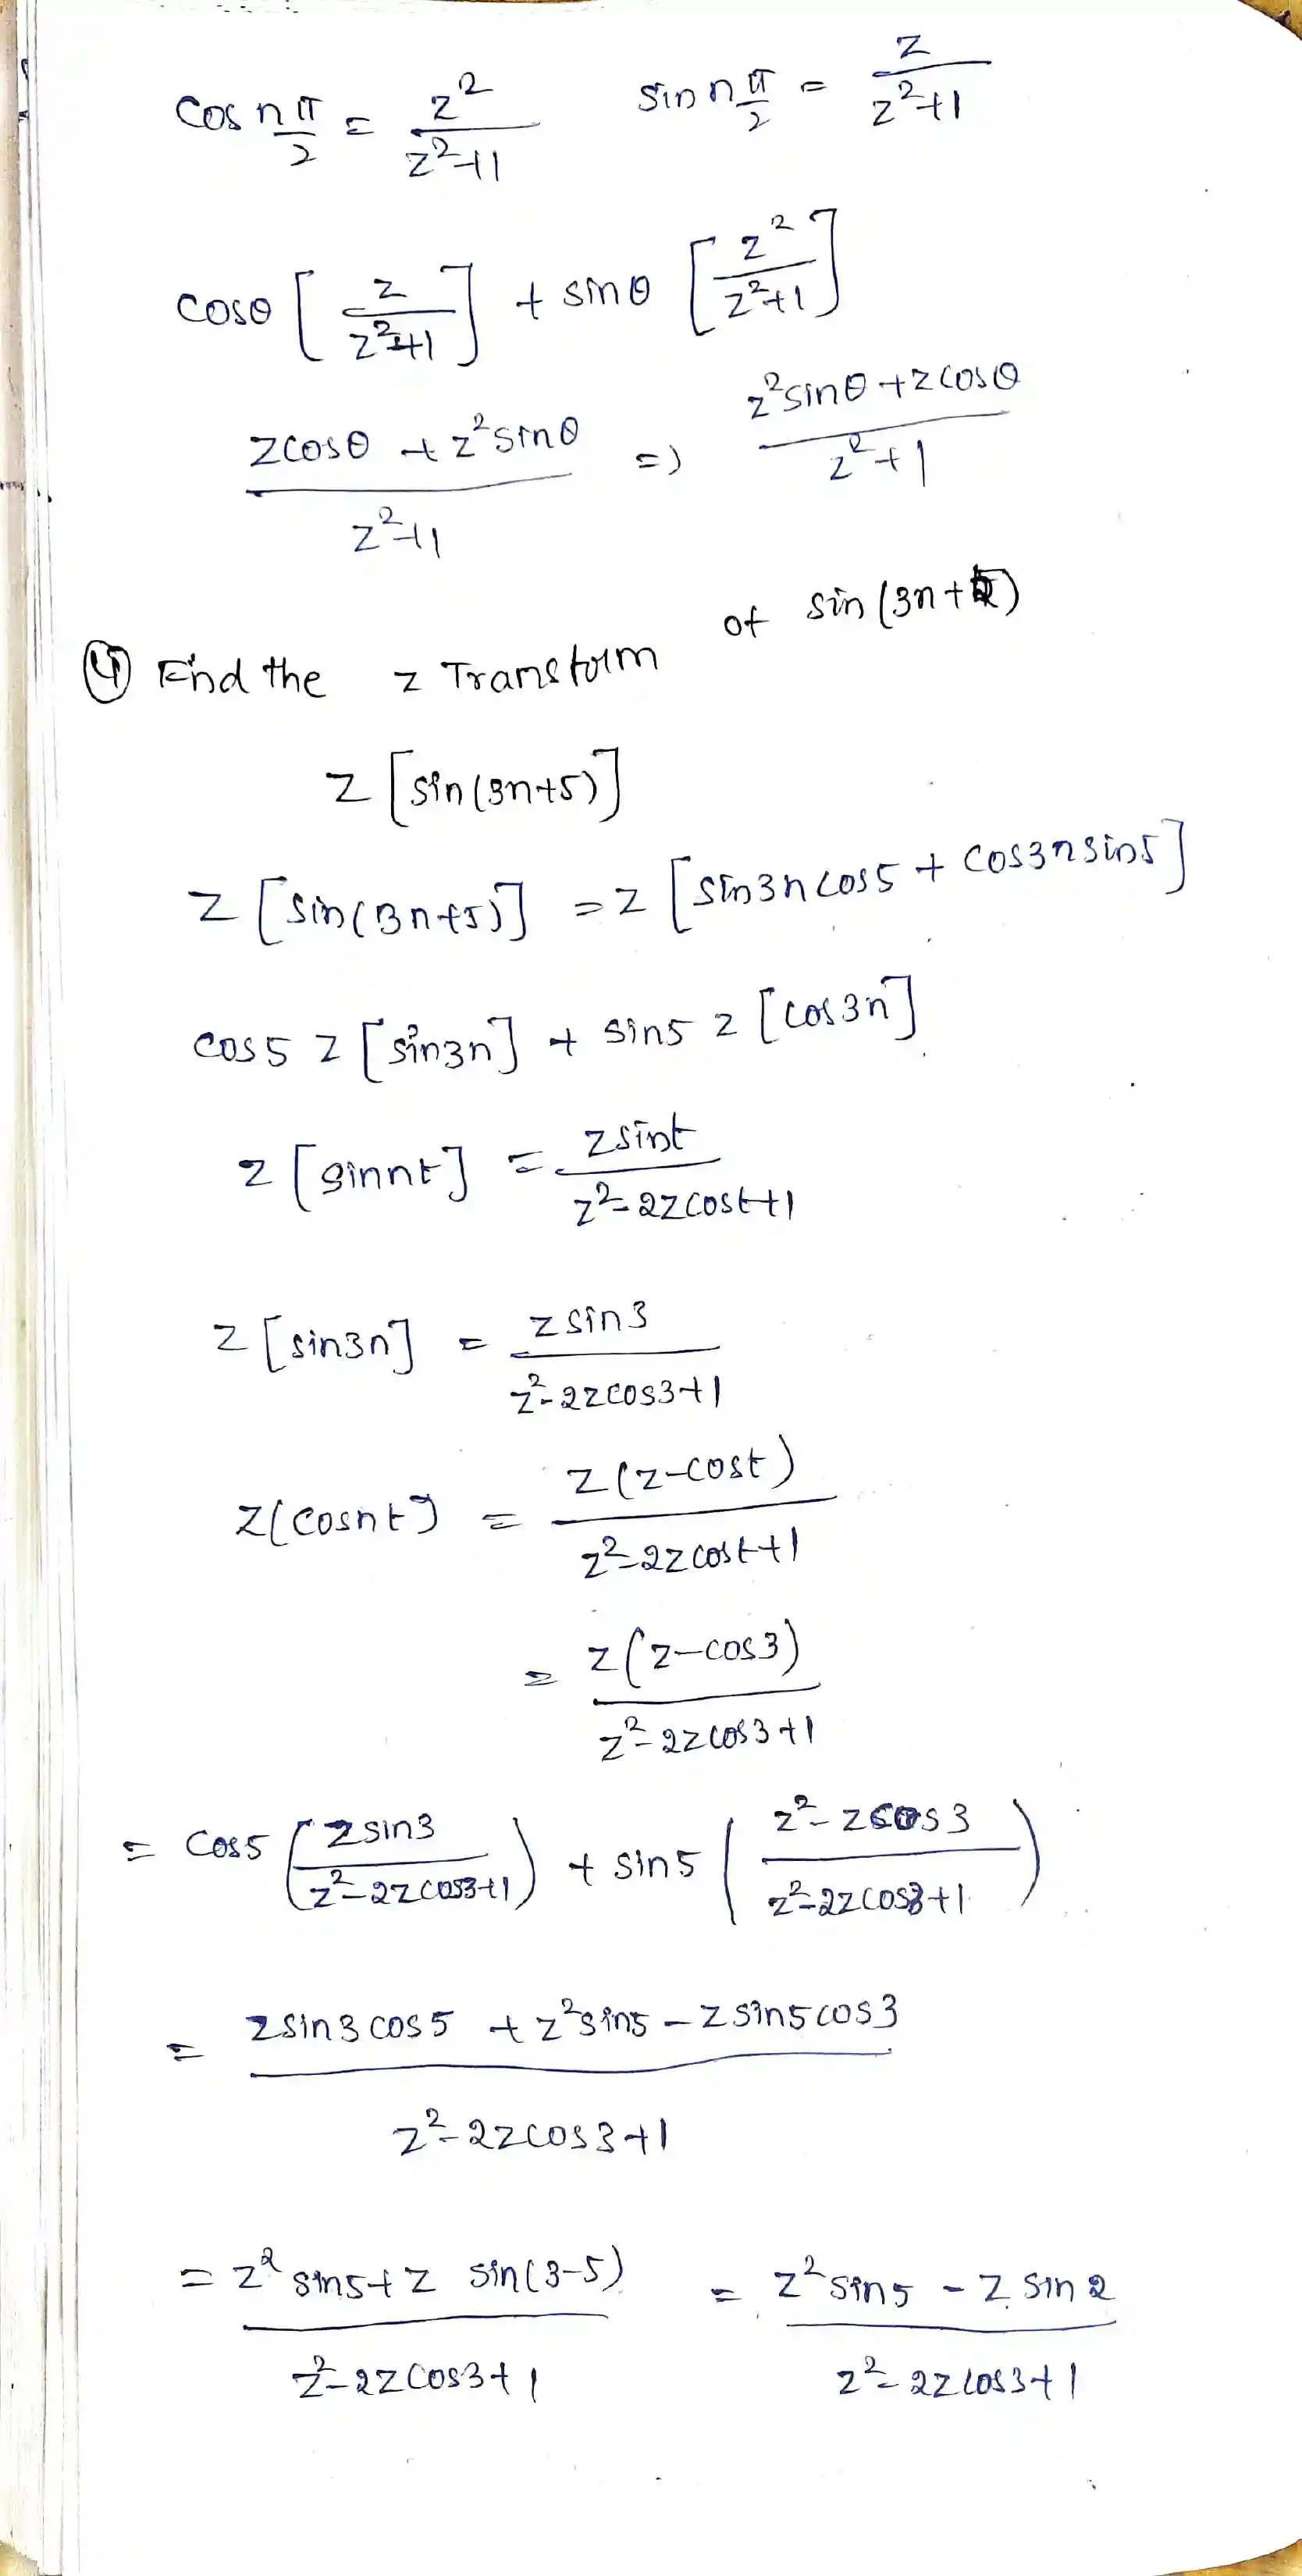 cos nπ/2 = z²/(z²+1)    sin nπ/2 = z/(z²+1)
cosθ [z/(z²+1)] + sinθ [z²/(z²+1)]
(zcosθ + z²sinθ)/(z²+1) => (z²sinθ + zcosθ)/(z²+1)
④ Find the z Transform of sin(3n+5)
z [sin(3n+5)]
z [sin(3n+5)] = z [sin3n cos5 + cos3n sin5]
cos5 z [sin3n] + sin5 z [cos3n]
z [sinnt] = zsint/(z²-2zcost+1)
z [sin3n] = zsin3/(z²-2zcos3+1)
z[cosnt] = z(z-cost)/(z²-2zcost+1)
= z(z-cos3)/(z²-2zcos3+1)
= cos5 (zsin3/(z²-2zcos3+1)) + sin5 ((z²-zcos3)/(z²-2zcos3+1))
= (zsin3cos5 + z²sin5 - zsin5cos3)/(z²-2zcos3+1)
= (z²sin5+z sin(3-5))/(z²-2zcos3+1) = (z²sin5 - z sin2)/(z²-2zcos3+1)